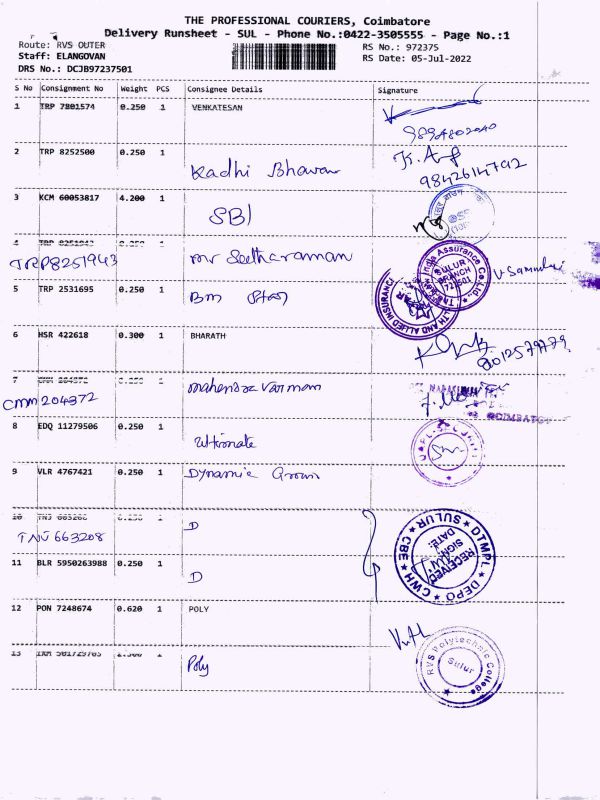 THE PROFESSIONAL COURIERS, Coimbatore
Delivery Runsheet - SUL - Phone No.:0422-3505555 - Page No.:1
Route: RVS OUTER
RS No.: 972375
Staff: ELANGOVAN
RS Date: 05-Jul-2022
DRS No.: DCJB97237501
S No Consignment No Weight PCS Consignee Details Signature
1 TRP 7801574 0.250 1 VENKATESAN
9894802040
2 TRP 8252500 0.250 1 Kadhi Bhavan
9842614792
3 KCM 60053817 4.200 1 SBI
4 TRP 8251943 0.250 1 mr Seetharaman
TRP8251943
5 TRP 2531695 0.250 1 Bm
India Assurance Co. Ltd.
SULUR BRANCH
HEALTH AND ALLIED INSURANCE
6 HSR 422618 0.300 1 BHARATH
8012579779
7 CMM 204372 1 Mahendra Varman
CMM 204372
COIMBATORE
8 EDQ 11279506 0.250 1 Ultimate
9 VLR 4767421 0.250 1 Dynamic
10 TNJ 663208 0.250 1 D
TNJ 663208
11 BLR 5950263988 0.250 1 D
DTMPL DEPO CWH CBE SULUR
RECEIVED
SIGN
DATE:
12 PON 7248674 0.620 1 POLY
13 1 Poly
RVS Polytechnic College
Sulur